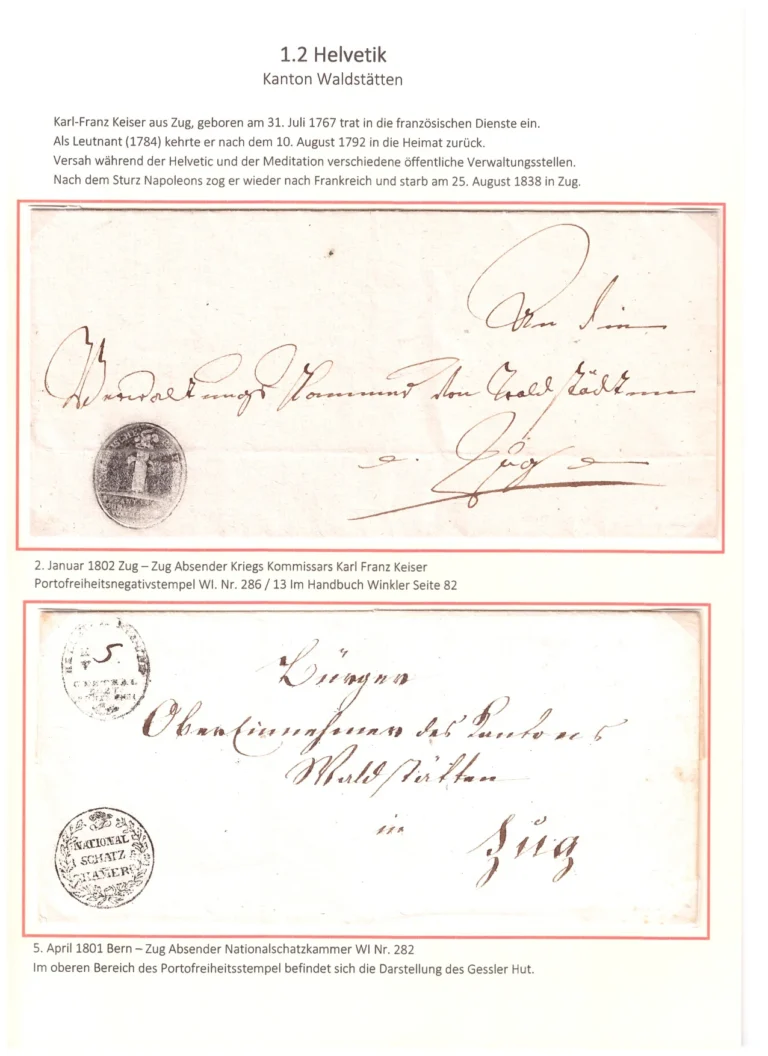 1.2 Helvetik
Kanton Waldstätten
Karl-Franz Keiser aus Zug, geboren am 31. Juli 1767 trat in die französischen Dienste ein.
Als Leutnant (1784) kehrte er nach dem 10. August 1792 in die Heimat zurück.
Versah während der Helvetic und der Meditation verschiedene öffentliche Verwaltungsstellen.
Nach dem Sturz Napoleons zog er wieder nach Frankreich und starb am 25. August 1838 in Zug.
An die
Verwaltungs Kammer von Waldstädten
Zug
2. Januar 1802 Zug – Zug Absender Kriegs Kommissars Karl Franz Keiser
Portofreiheitsnegativstempel WI. Nr. 286 / 13 Im Handbuch Winkler Seite 82
5.
CENTRAL
Bürger
Obereinnehmer des Kantons
Waldstätten
in
Zug
NATIONAL
SCHATZ
KAMER
5. April 1801 Bern – Zug Absender Nationalschatzkammer WI Nr. 282
Im oberen Bereich des Portofreiheitsstempel befindet sich die Darstellung des Gessler Hut.